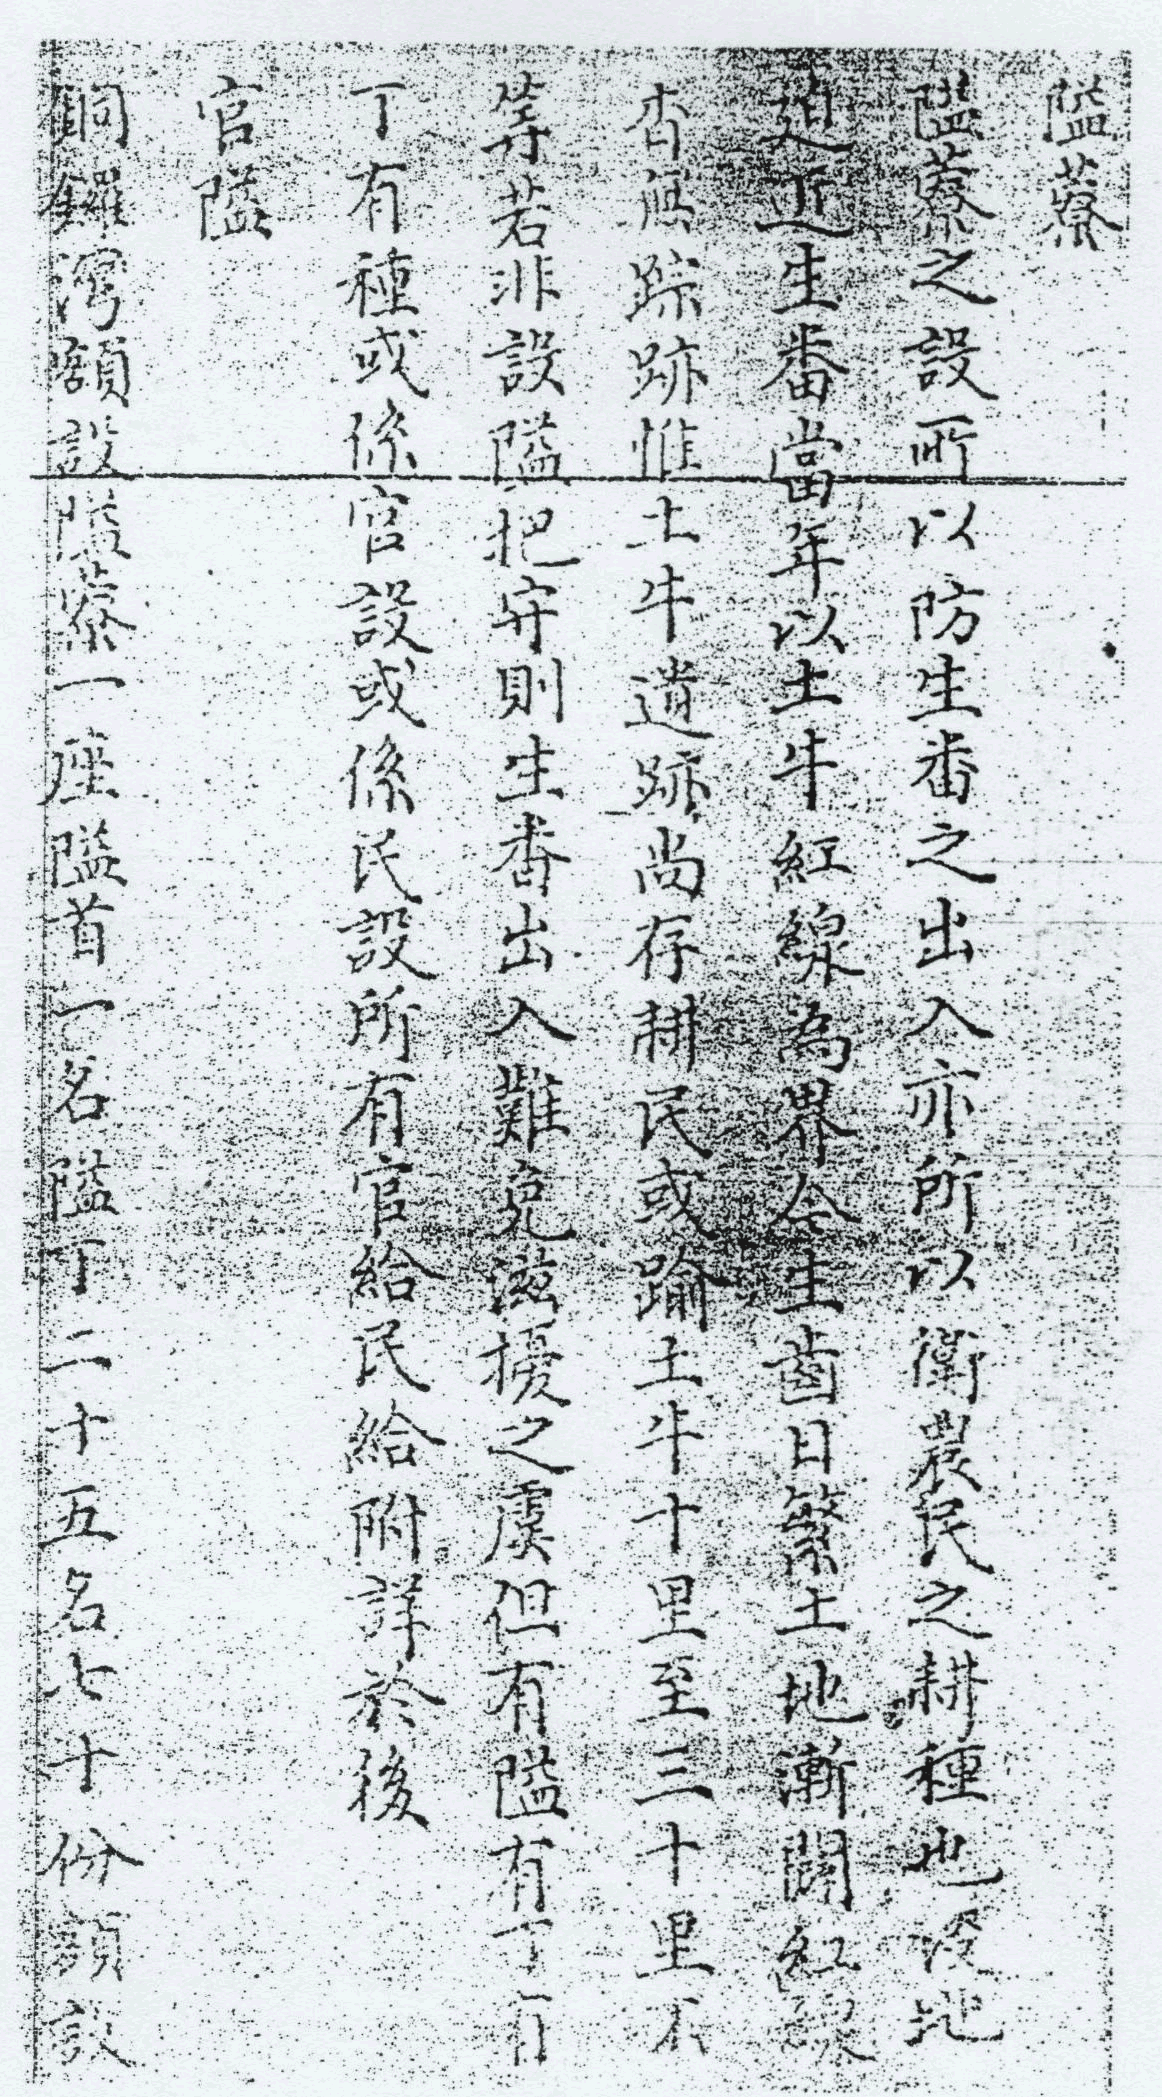 隘藔
隘藔之設所以防生番之出入亦所以衛農民之耕種也設地
迫近生番當年以土牛紅線為界今生齒日繁土地漸闢紅線
杳無踪跡惟土牛遺跡尚存耕民或踰土牛十里至三十里不
等若非設隘把守則生番出入難免滋擾之虞但有隘有丁有
丁有種或係官設或係民設所有官給民給附詳於後
官隘
銅鑼灣額設隘藔一座隘首一名隘丁二十五名七十份額設